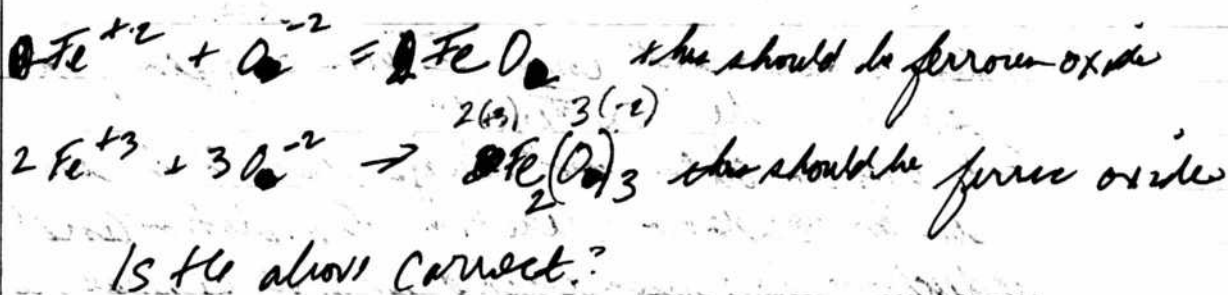 Fe+2 + O-2 = FeO this should be ferrous oxide
2(+3) 3(-2)
2 Fe+3 + 3O-2 → Fe2(O)3 this should be ferric oxide
Is the above correct?